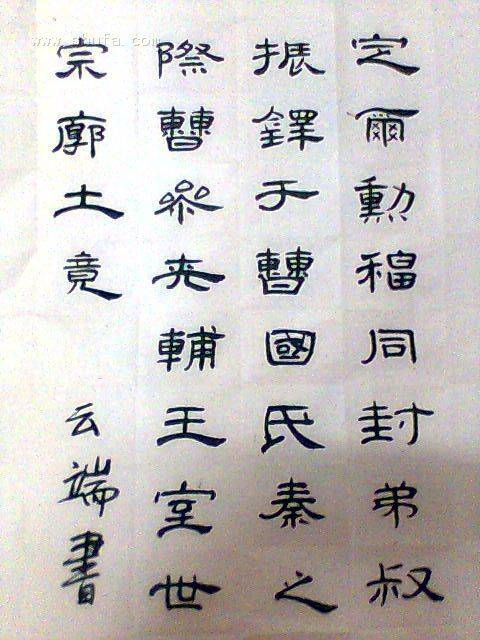 www.shufa.com
定爾勳福同封弟叔
振鐸于曹國氏秦之
際曹參夾輔王室世
宗廓土竟
云端書